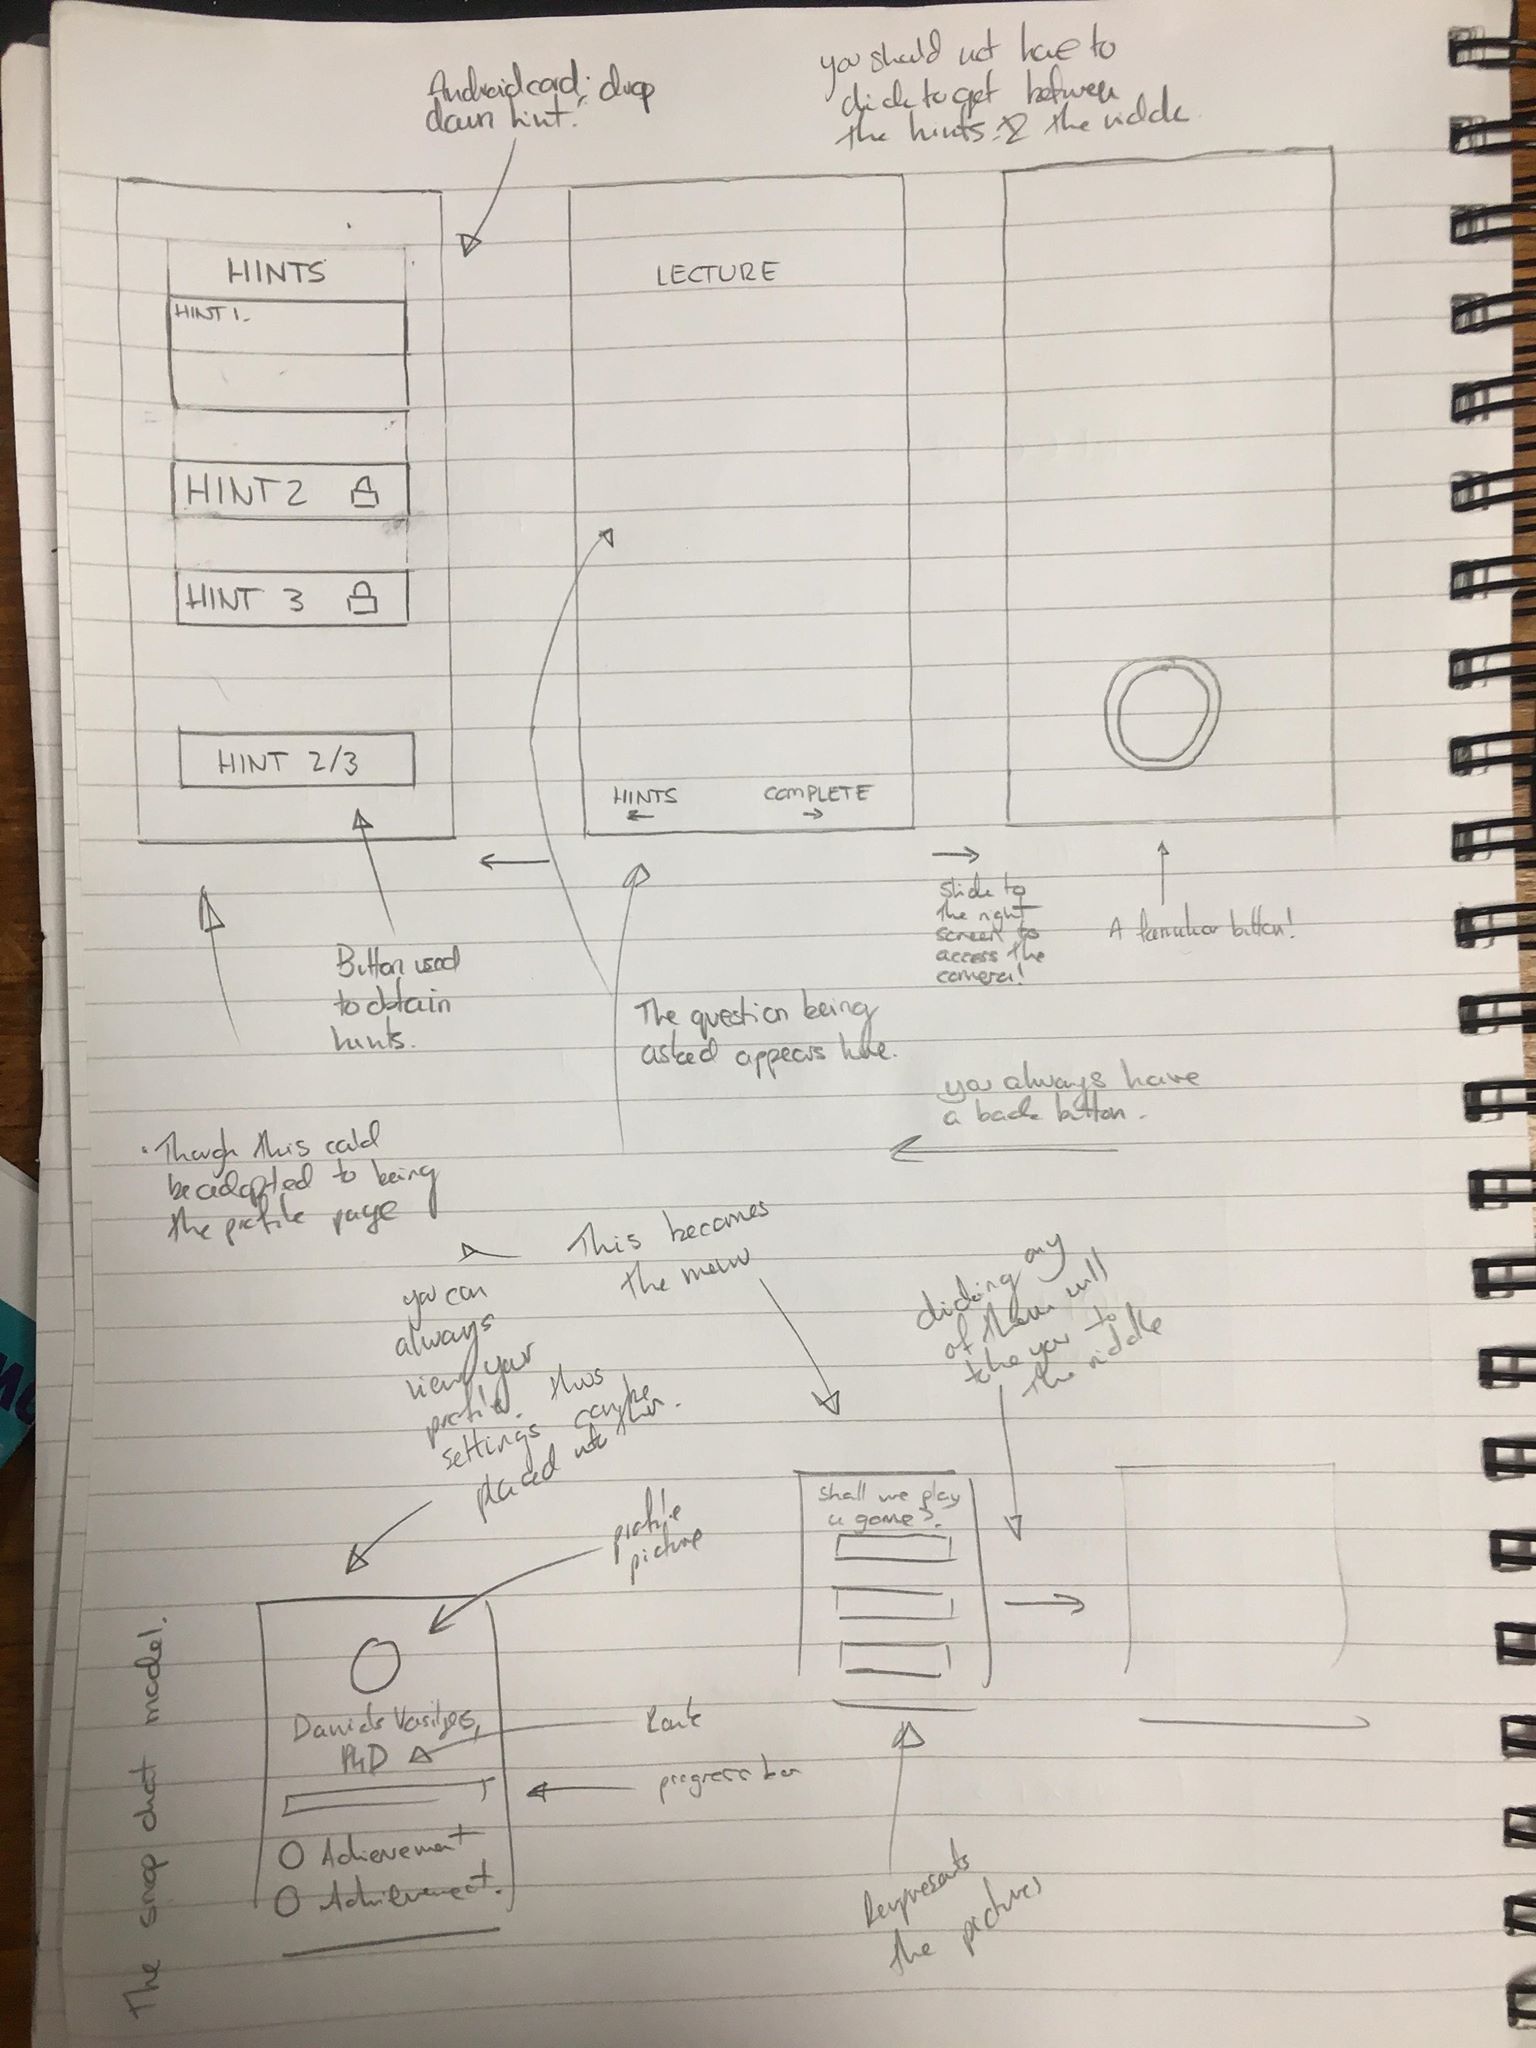 Android card: drop
down hint!
you should not have to
click to get between
the hints & the riddle.
HINTS
HINT 1.
HINT 2
HINT 3
HINT 2/3
LECTURE
HINTS
←
COMPLETE
→
Button used
to obtain
hints.
The question being
asked appears here.
slide to
the right
screen to
access the
camera!
A familiar button!
you always have
a back button.
Though this could
be adapted to being
the profile page
This becomes
the menu
you can
always
view your
profile. thus
settings can be
placed into this.
clicking any
of them will
take you to
the riddle
profile
picture
Shall we play
a game?
PhD
Rank
progress bar
Achievement
Achievement.
Represents
the pictures
The snap chat model.